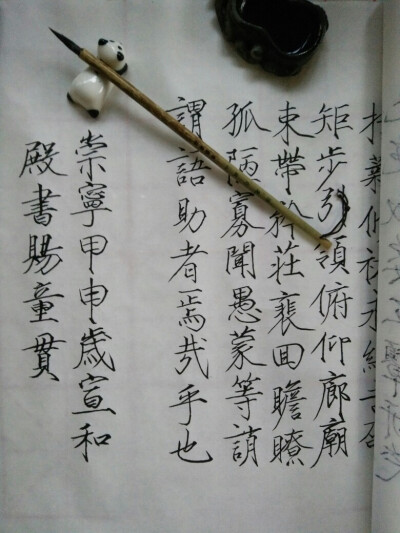 矩步引領俯仰廊廟
束帶矜莊裵回瞻瞭
孤陋寡聞愚蒙等誚
謂語助者焉哉乎也
崇寧甲申歲宣和
殿書賜童貫